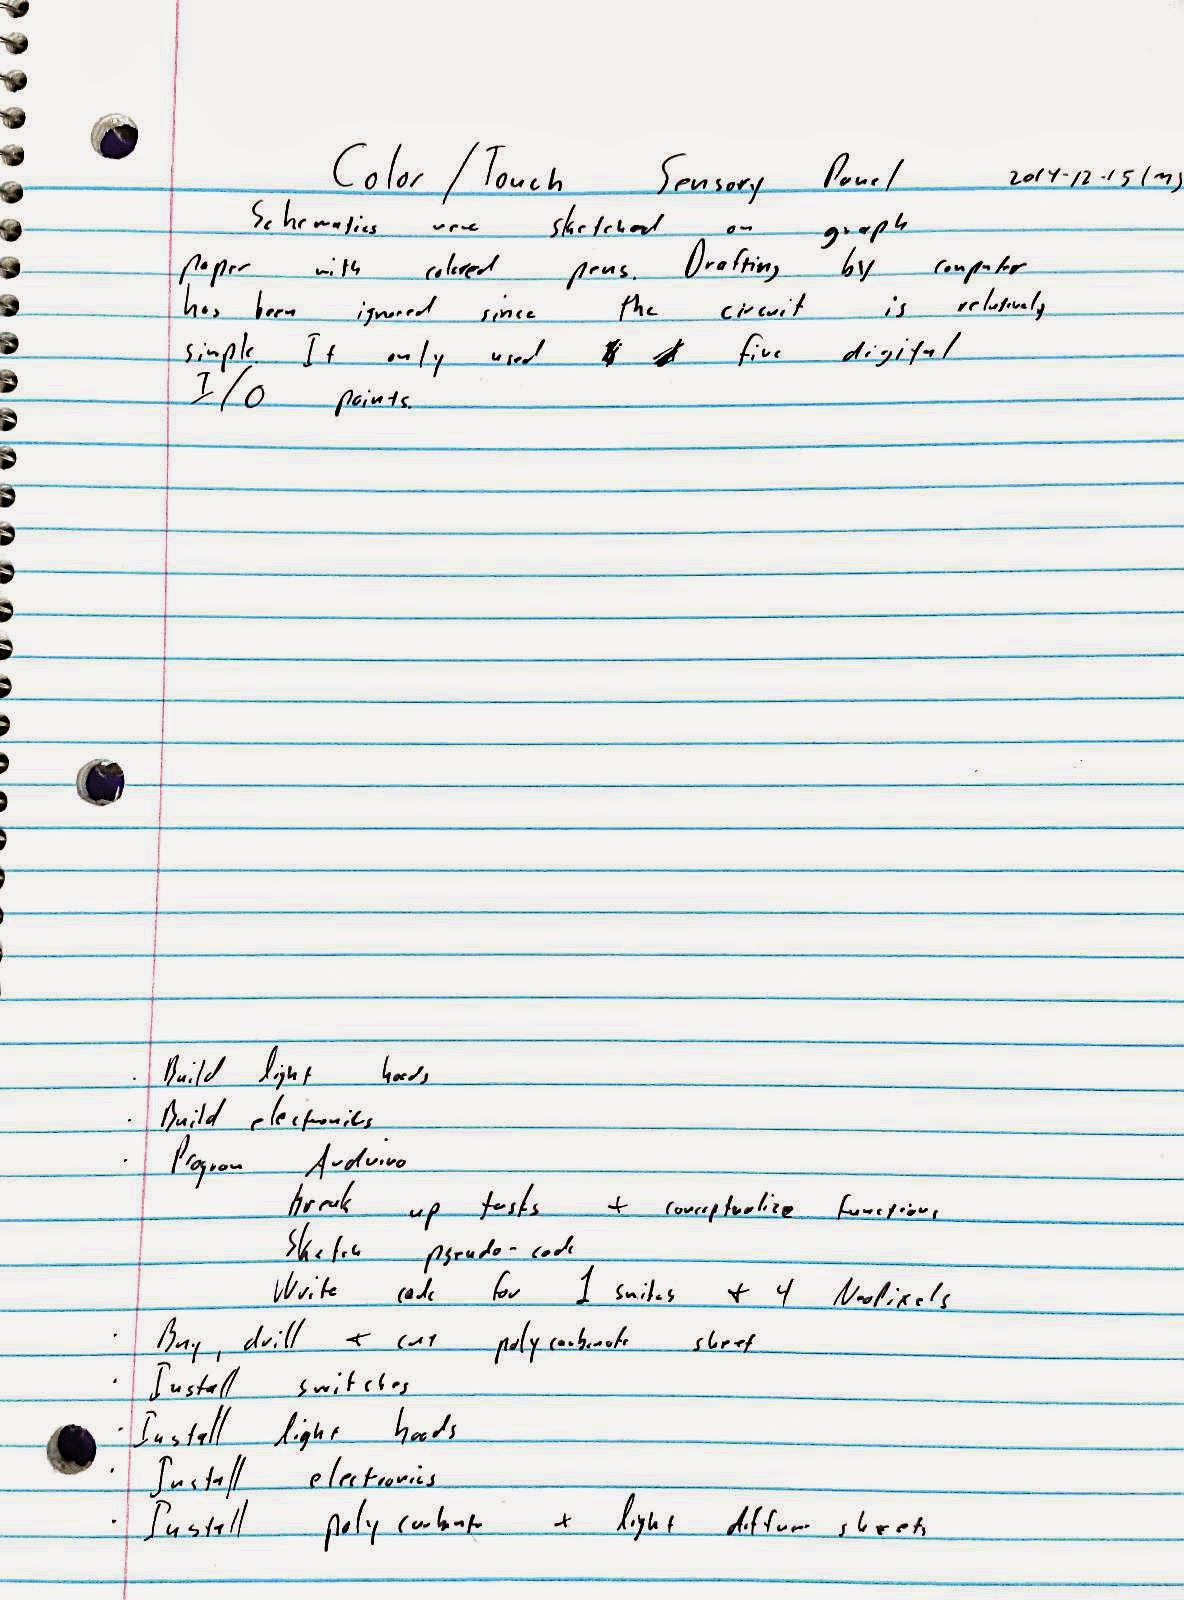 Color/Touch Sensory Panel 2014-12-15 (m)
Schematics were sketched on graph
paper with colored pens. Drafting by computer
has been ignored since the circuit is relatively
simple. It only used five digital
I/O points.
· Build light hoods
· Build electronics
· Program Arduino
break up tasks + conceptualize functions
Sketch pseudo-code
Write code for 1 switch + 4 NeoPixels
· Buy, drill + cut polycarbonate sheet
· Install switches
· Install light hoods
· Install electronics
· Install polycarbonate + light diffuser sheets